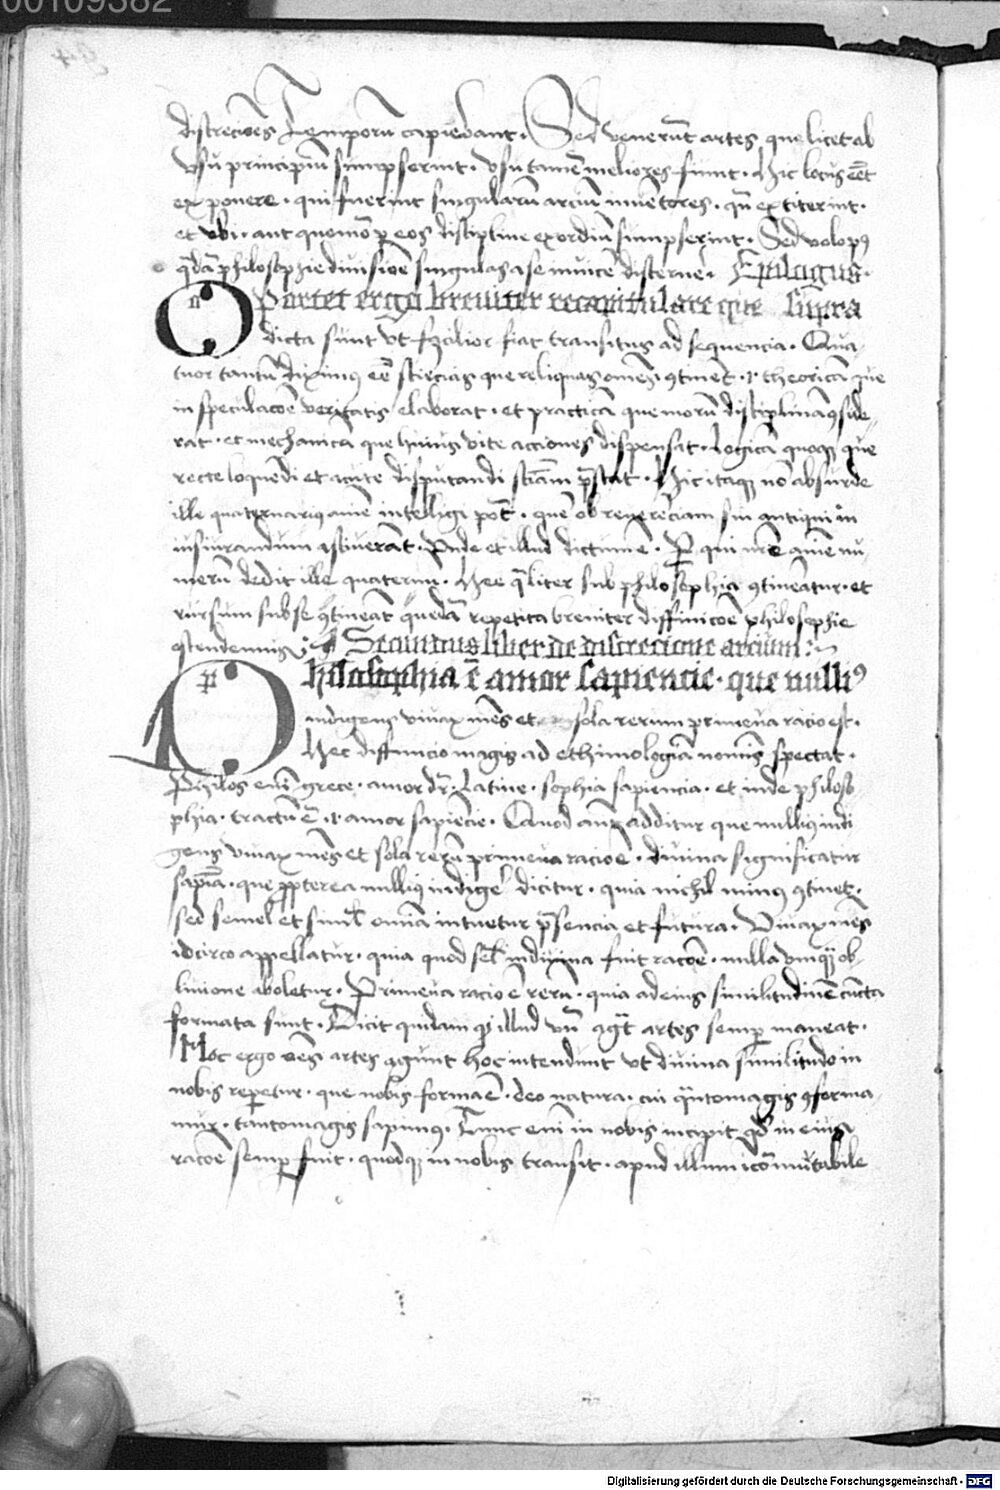 00109382
discrecioēs Temporū capiebant. Sed venerūt artes que licet ab
vsu principiū sumpserint. vsu tamē meliores sunt. Hic locus eēt
exponere. qui fuerint singularū arciū inuētores. qn̄ extiterint.
et vbi. aut quomō p eos discipline exordiū sumpserint. Sed volo pꝰ
qͣdā philosophie diuisiōe singulas a se inuicē discerne͛. Epilogus.
Oportet ergo breuiter recapitulare que supra
dicta sunt vt facilior fiat transitus ad sequencia. Qua
tuor tantū diximꝰ eē sciēcias que reliquas om̄es ꝯtinēt. .i. theoricā que
in speculacōe veritatis elaborat. et practicā que morū disciplinā ꝯside
rat. et mechanica que huius vite acciones dispensat. Logicā quoqꝫ que
recte loquendi et acute disputandi sciām p̄stat. Hic itaqꝫ nō absurde
ille quaternariꝰ anīe intelligi pōt. quē ob reuerēciam sui antiqui in
iusiurandum asciuerāt. Vnde et illud dictum ē. Per qui nr̄e anīe nu
merū dedit ille quaternū. Hec qͣliter sub philosophia ꝯtineātur. et
rursum sub se ꝯtineāt quedā repetita breuiter diffinicōe philosophie
ostendemus. Secundus liber de discrecione arcium
Philosophia ē amor sapiencie. que nulliꝰ
indigens viuax mēs et sola rerum primeua racio est.
Hec diffinicio magis ad ethimologiā nomīs spectat.
Philos enī grece. amor dr̄. Latine. sophia sapiencia. et inde philoso
phia. tractū ē .i. amor sapiēcie. Quod autꝫ additur que nulliꝰ indi
gens viuax mēs et sola rerū primeua racio ē. diuina significatur
sapīa. que ꝓpterea nulliꝰ indige͛ dicitur. quia nichil minꝰ ꝯtinet.
sed semel et simul omīa intuetur p̄sencia et futura. Viuax mēs
idcirco appellatur. quia quod sel̄ in diuina fuit racōe. nulla vnqꝫ ob
liuione aboletur. Primeua racio ē rerū. quia ad eius similitudinē cūcta
formata sunt. Dicit quidam qꝫ illud vn̄ agūt artes semꝑ maneat.
Hoc ergo oēs artes agunt hoc intendunt vt diuina similitudo in
nobis repetur. que nobis forma ē. deo natura. cui qͣntomagis ꝯforma
mur. tantomagis sapimꝰ. Tunc enī in nobis incipit qd̄ in eius
racōe semꝑ fuit. quodqꝫ in nobis transit. apud illum icōmutabile
Digitalisierung gefördert durch die Deutsche Forschungsgemeinschaft - DFG